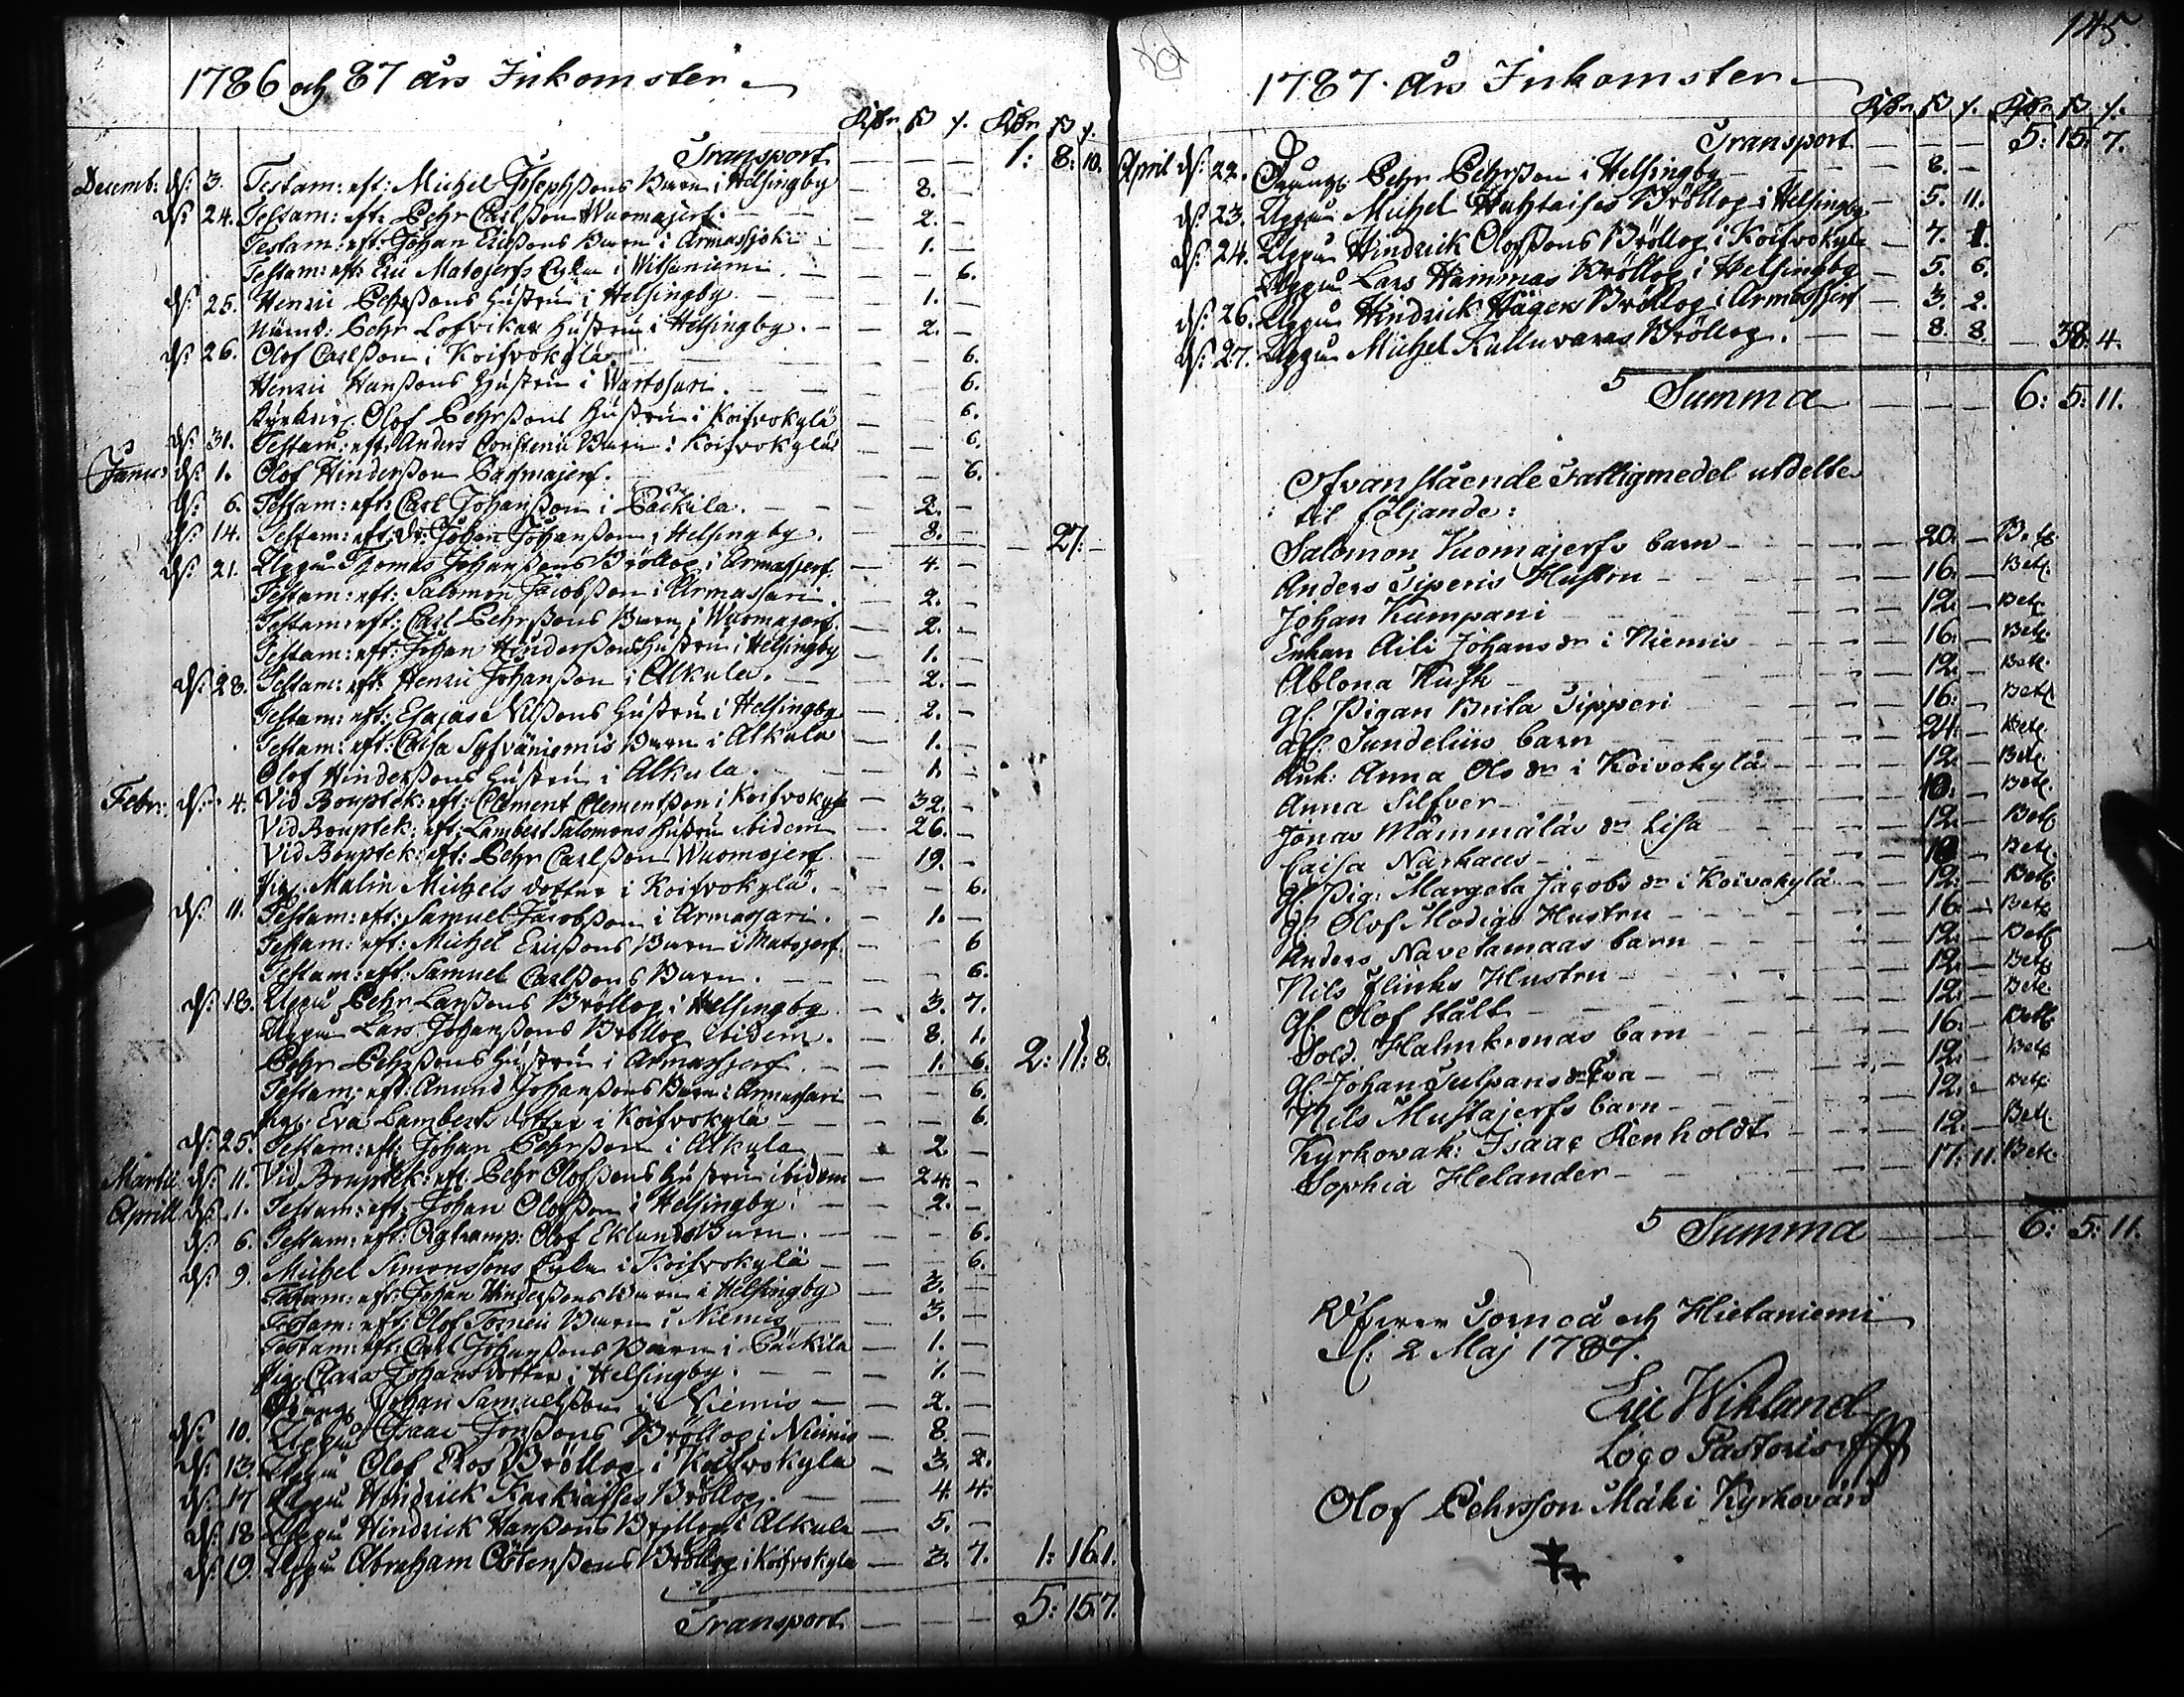 1786 och 87 års Inkomster
Rdr ß rs. Rdr ß rs.
Transport — — — 1: 8: 10.
Decemb: d: 3. Testam: eft: Michel Josephßons Barn i Helsingby — 8. —
d: 24. Testam: eft: Pehr Carlßon Wuomajerf. — 2. —
Testam: eft: Johan Ericßons Barn i Armassjoki — 1. —
Testam: eft: Eric Matojerfs Enka i Witsaniemi. — — 6.
d: 25. Henric Pehrßons Hustru i Helsingby — 1. —
Nämd: Pehr Lofvikar Hustru i Helsingby. — 2. —
d: 26. Olof Carlßon i Koifvokylä. — — 6.
Henric Hanßons Hustru i Wartosari. — — 6.
Kyrkow. Olof Pehrßons Hustru i Koifvokylä — — 6.
d: 31. Testam: eft: Anders Barn i Koifvokylä — — 6.
Januar: d: 1. Olof Hinderßon Papmajerf. — — 6.
d: 6. Testam: eft: Carl Johanßon i Päckila. — 2. —
d: 14. Testam: eft: dr: Johan Johanßon i Helsingby. — 8. — — 27: —
d: 21. Uppå Thomas Johanßons Bröllop i Armasjerf. — 4. —
Testam: eft: Salomon Jacobßon i Armassari. — 2. —
Testam: eft: Carl Pehrßons Barn i Wuomajerf. — 2. —
Testam: eft: Johan Hinderßons Hustru i Helsingby — 1. —
d: 28. Testam: eft: Henric Johanßon i Alkula. — 2. —
Testam: eft: Esaias Nilßons Hustru i Helsingby — 2. —
Testam: eft: Caisa Sylväniemis Barn i Alkula — 1. —
Olof Hinderßons Hustru i Alkula. — 1. —
Febr: d: 4. Vid Bouptek: eft: Clement Clementßon i Koifvokylä — 32. —
Vid Bouptek: eft: Lambert Salomons Hustru ibidem — 26. —
Vid Bouptek: eft: Pehr Carlßon Wuomajerf. — 19. —
Pig. Malin Michels dotter i Koifvokylä. — — 6.
d: 11. Testam: eft: Samuel Jacobßon i Armassari. — 1. —
Testam: eft: Michel Ericßons Barn i Matojerf. — — 6
Testam: eft: Samuel Carlßons Barn. — — 6.
d: 18. Uppå Pehr Larßons Bröllop i Helsingby — 3. 7.
Uppå Lars Johanßons Bröllop ibidem. — 8. 1.
Pehr Pehrßons Hustru i Armassjerf. — 1. 6. 2: 11: 8.
Testam: eft: Amund Johanßons Barn i Armassari — — 6.
Pig: Eva Lamberts dotter i Koifvokylä — — 6.
d: 25. Testam: eft: Johan Pehrßon i Alkula — 2 —
Martii d: 11. Vid Bouptek: eft: Pehr Olofßons Hustru ibidem — 24. —
Aprill d: 1. Testam: eft: Johan Olofßon i Helsingby. — 2. —
d: 6. Testam: eft: Olof Eklunds Barn. — — 6.
d: 9. Michel Simonssons Enka i Koifvokylä — — 6.
Testam: eft: Johan Hinderßons Barn i Helsingby — 3. —
Testam: eft: Olof Barn i Niemis — 3. —
Testam: eft: Carl Johanßons Barn i Päckila — 1. —
Pig. Clara Johans dotter i Helsingby. — 1. —
Dräng. Johan Samuelßon i Niemis — 2. —
d: 10. Uppå Isaac Jonßons Bröllop i Niemis — 8. —
d: 13. Uppå Olof Ros Bröllop i Koifvokylä — 3. 2.
d: 17 Uppå Hindrick Karkiaises Bröllop. — 4. 4.
d: 18 Uppå Hindrick Hanßons Bröllop i Alkula — 5. —
d: 19. Uppå Abraham Bröllop i Koifvokylä — 3. 7. 1: 16. 1.
Transport — — — 5: 15: 7.
145.
1787. års Inkomster
Rdr ß rs. Rdr ß rs.
Transport — — — 5: 15: 7.
April d: 22. Dräng. Pehr Pehrßon i Helsingby — 8. —
d: 23. Uppå Michel Huhtaises Bröllop i Helsingby — 5. 11.
d: 24. Uppå Hindrick Olofßons Bröllop i Koifvokylä — 7. 1.
Uppå Lars Hammas Bröllop i Helsingby — 5. 6.
d: 26. Uppå Hindrick Hägers Bröllop i Armassjerf — 3. 2.
d: 27. Uppå Michel Kulluvaras Bröllop. — 8. 8. — 38: 4.
Summa — — — 6: 5: 11.
Ofvanstående Fattigmedel utdeltes
til följande:
Salomon Vuomajerfs barn — 20. — Bet.
Anders Siperis Hustru — 16. — Bet.
Johan Kumpani — 12. — Bet.
Enkan Aili Johans dr i Niemis — 16. — Bet.
Ablona Kusk — 12. — Bet.
gl. Pigan Brita Sipperi — 16. — Bet.
afl. Sundelius barn — 24. — Bet.
Enk: Anna Ols dr i Koivokylä — 12. — Bet.
Anna Silfver — 10. — Bet.
Jonas Mämmäläs dr Lisa — 12. — Bet.
Caisa Närhaus — 10 — Bet.
gl. Pig: Margeta Jacobs dr i Koivokylä — 12. — Bet.
gl. Olof Modigs Hustru — 16. — Bet.
Anders Navetamaas barn — 12. — Bet.
Nils Flinks Hustru — 12. — Bet.
gl. Olof Stålt — 12. — Bet.
Sold. Halmkronas barn — 16. — Bet.
gl. Johan Tulpans dr Eva — 12. — Bet.
Nils Mustajerfs barn — 12. — Bet.
Kyrkovak: Isaac Renholdt — 12. — Bet.
Sophia Helander — 17. 11. Bet.
Summa — — 6: 5: 11.
Öfver Torneå och Hietaniemi
d: 2 Maj 1787.
Eric Wikland
Loco Pastoris
Olof Pehrsson Mäki Kyrkovärd